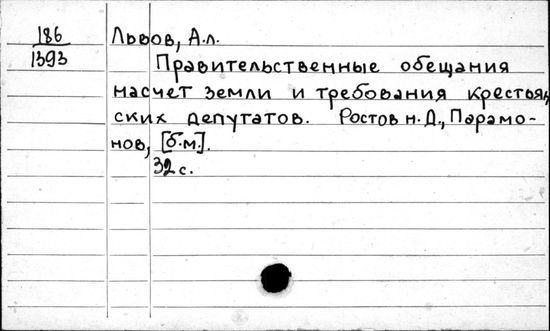 186
1393
Львов, А.л.
Правительственные обещания
насчет земли и требования крестьян
ских депутатов. Ростов н.Д., Парамо-
нов, [б.м.].
32 с.